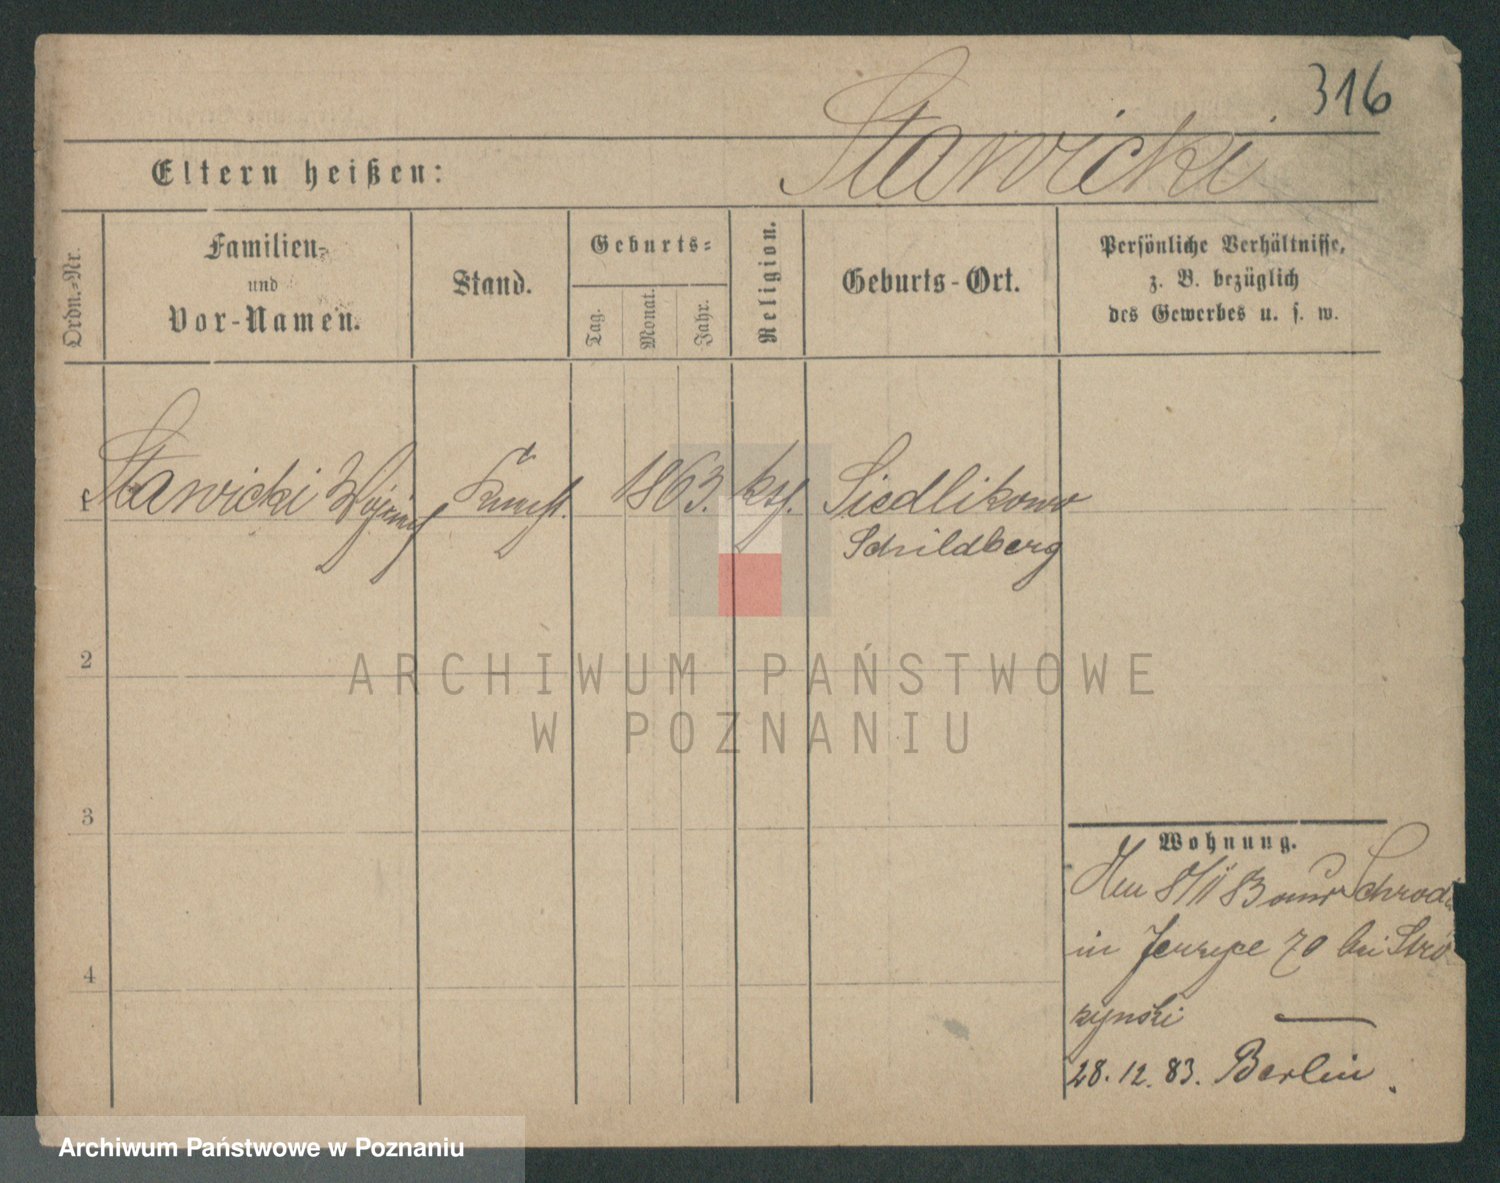 316
Stawicki
Eltern heißen:
Ordn.-Nr.
Familien-
und
Vor-Namen.
Stand.
Geburts-
Tag.
Monat.
Jahr.
Religion.
Geburts-Ort.
Persönliche Verhältnisse,
z. B. bezüglich
des Gewerbes u. s. w.
1 Stawicki 1863. Siedlikowo
Schildberg
2
3
4
ARCHIWUM PAŃSTWOWE
W POZNANIU
Wohnung.
83
in 70 bei
zynski —
28.12.83. Berlin.
Archiwum Państwowe w Poznaniu